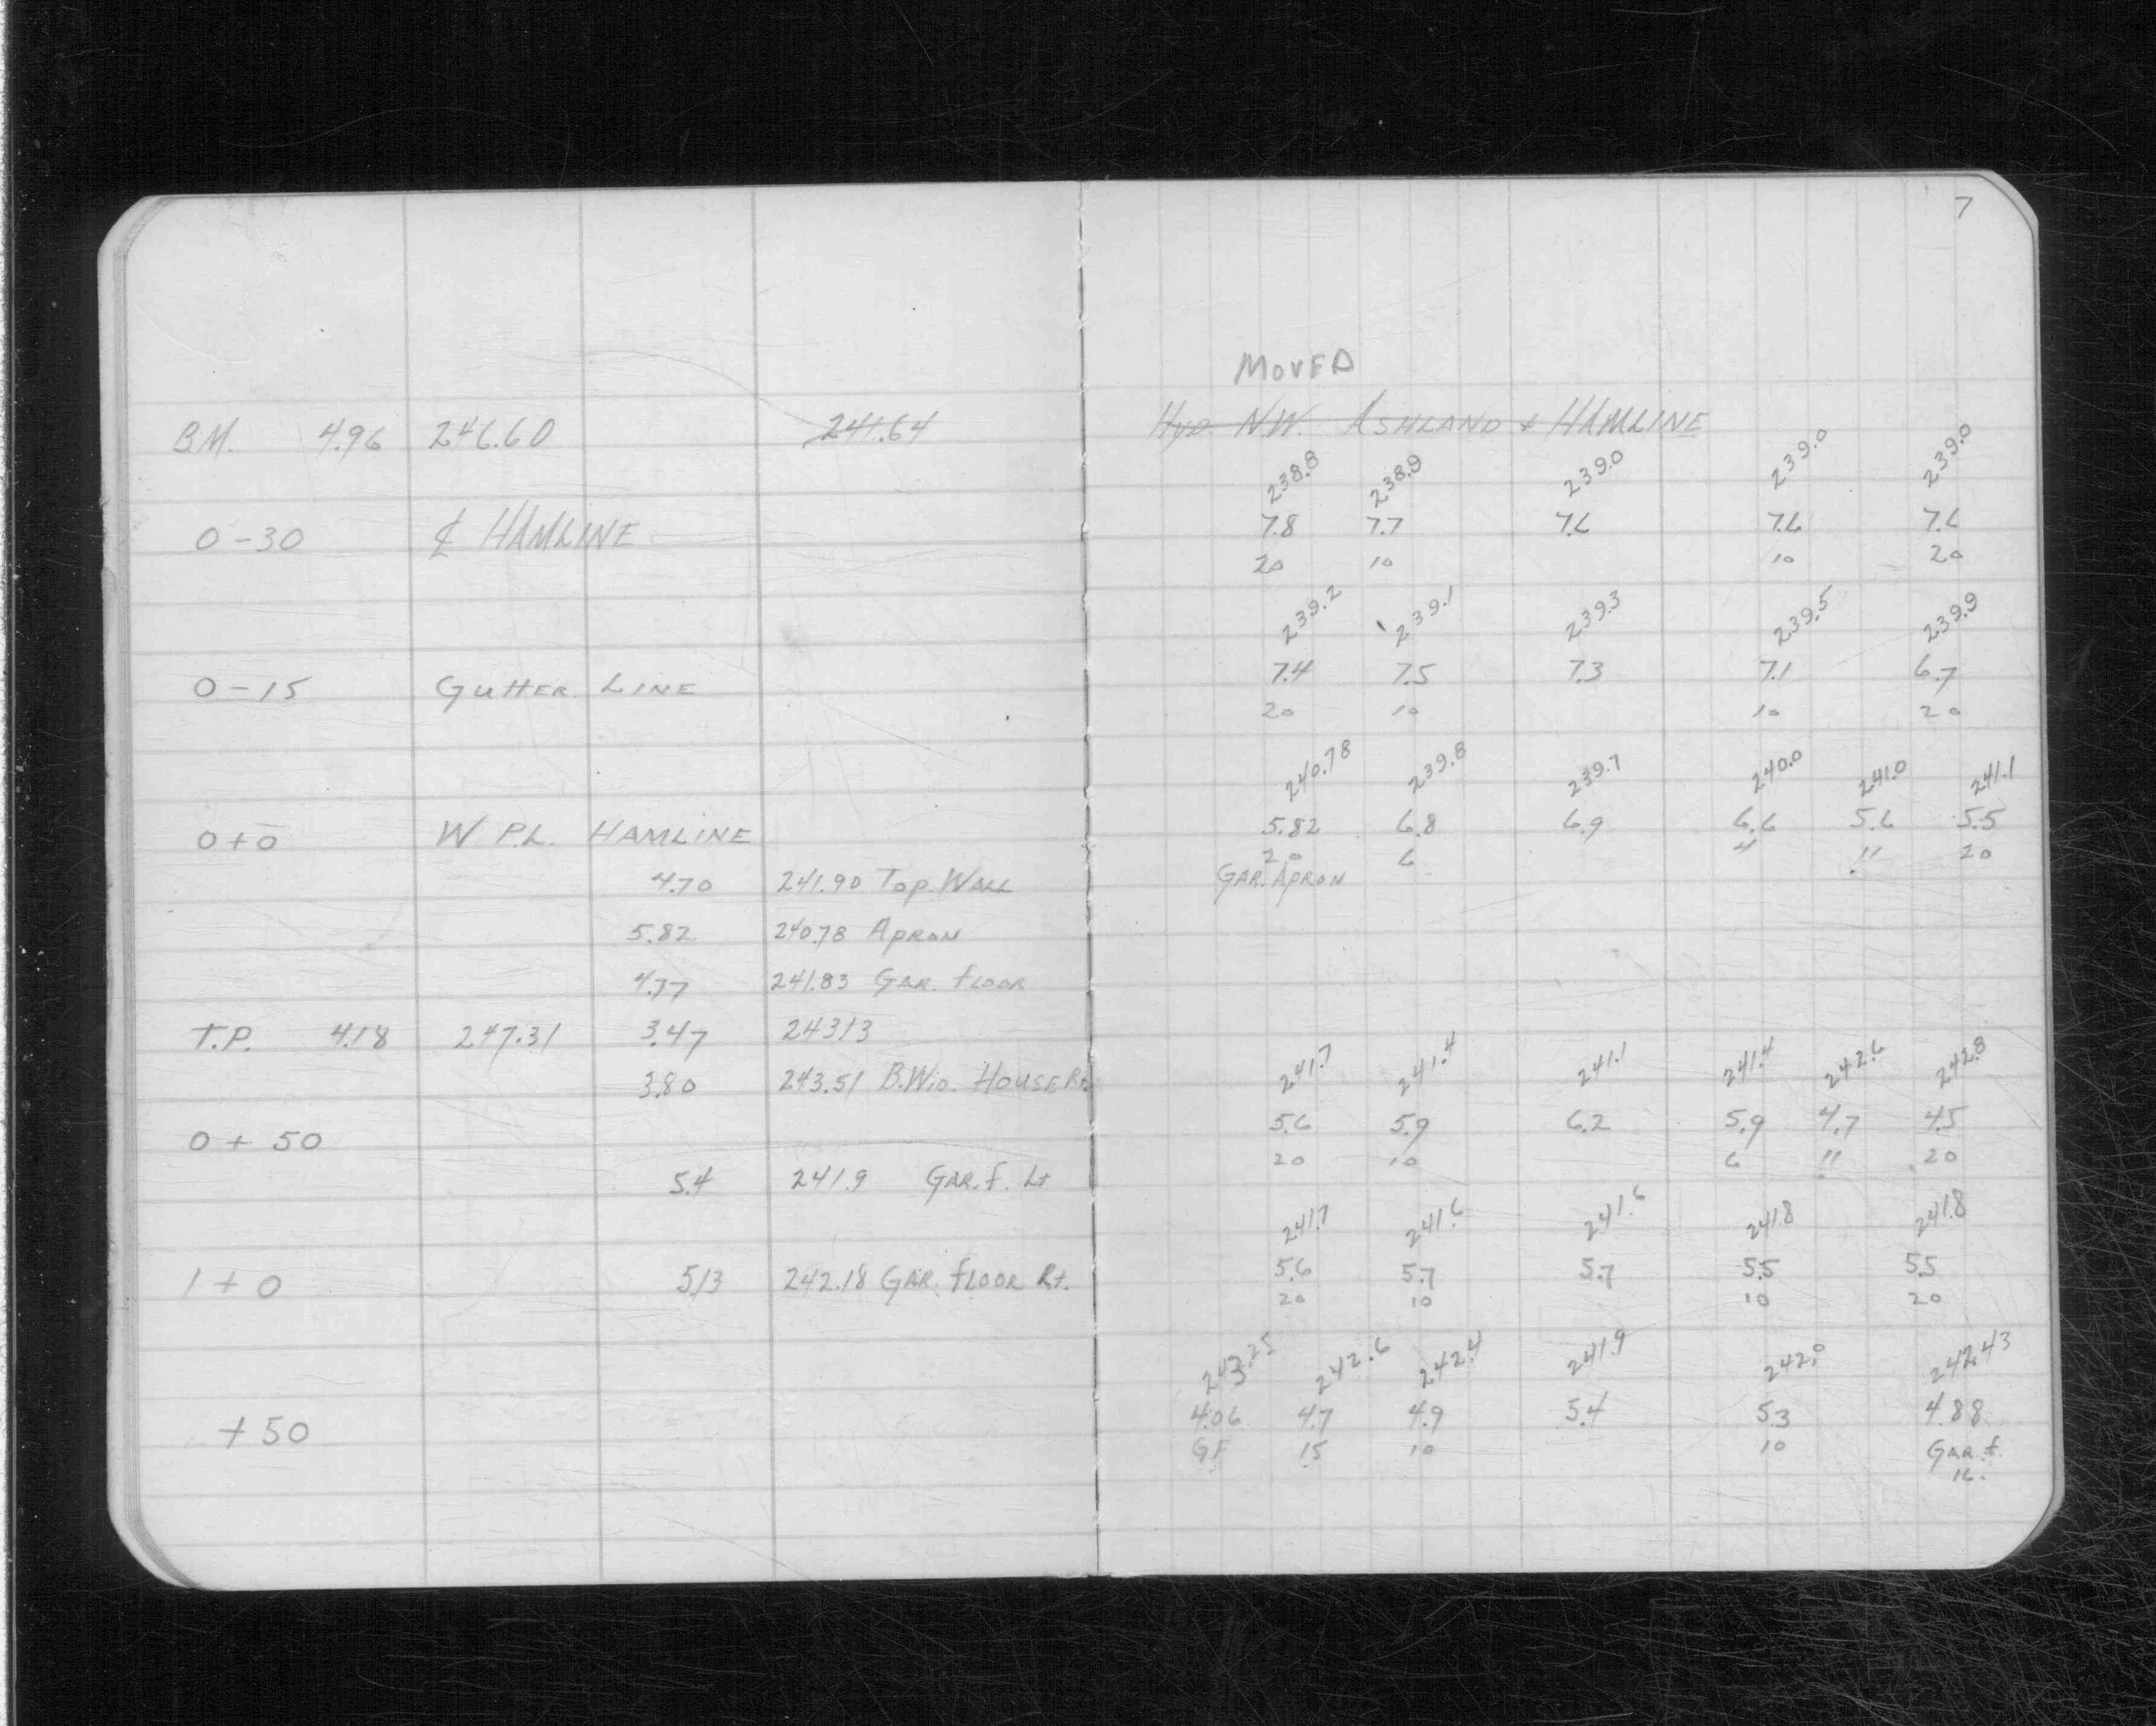 7
MOVED
B.M. 4.96 246.60 241.64 Hyd. N.W. ASHLAND & HAMLINE
238.8 238.9 239.0 239.0 239.0
0-30 ℄ HAMLINE 7.8 7.7 7.6 7.6 7.6
20 10 10 20
239.2 239.1 239.3 239.5 239.9
0-15 Gutter LINE 7.4 7.5 7.3 7.1 6.7
20 10 10 20
240.78 239.8 239.7 240.0 241.0 241.1
0+0 W P.L. HAMLINE 5.82 6.8 6.9 6.6 5.6 5.5
20 6 4 11 20
4.70 241.90 Top Wall GAR. APRON
5.82 240.78 Apron
4.77 241.83 GAR. floor
T.P. 4.18 247.31 3.47 243.13
241.7 241.4 241.1 241.4 242.6 242.8
3.80 243.51 B.Wio. House Rt.
0+50 5.6 5.9 6.2 5.9 4.7 4.5
20 10 6 11 20
5.4 241.9 GAR. f. Lt
241.7 241.6 241.6 241.8 241.8
1+0 5.13 242.18 GAR. floor Rt. 5.6 5.7 5.7 5.5 5.5
20 10 10 20
243.25 242.6 242.4 241.9 242.0 242.43
+50 4.06 4.7 4.9 5.4 5.3 4.88
G.F 15 10 10 GAR. f.
16.